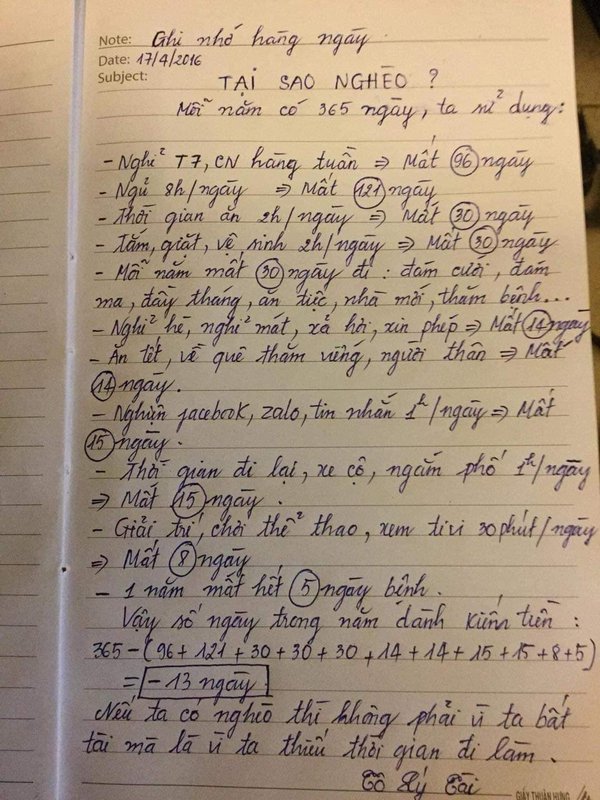 Note: Ghi nhớ hàng ngày
Date: 17/4/2016
Subject:
TẠI SAO NGHÈO ?
Mỗi năm có 365 ngày, ta sử dụng:
- Nghỉ T7, CN hàng tuần => Mất 96 ngày
- Ngủ 8h/ngày => Mất 121 ngày
- Thời gian ăn 2h/ngày => Mất 30 ngày
- Tắm, giặt, vệ sinh 2h/ngày => Mất 30 ngày
- Mỗi năm mất 30 ngày đi : đám cưới, đám
ma, đầy tháng, ăn tiệc, nhà mới, thăm bệnh...
- Nghỉ hè, nghỉ mát, xả hơi, xin phép => Mất 14 ngày
- Ăn tết, về quê thăm viếng, người thân => Mất
14 ngày.
- Nghiện facebook, zalo, tin nhắn 1h/ngày => Mất
15 ngày.
- Thời gian đi lại, xe cộ, ngắm phố 1h/ngày
=> Mất 15 ngày.
- Giải trí, chơi thể thao, xem tivi 30 phút/ngày
=> Mất 8 ngày
- 1 năm mất hết 5 ngày bệnh.
Vậy số ngày trong năm dành kiếm tiền :
365-(96+121+30+30+30+14+14+15+15+8+5)
= -13 ngày
Nếu ta có nghèo thì không phải vì ta bất
tài mà là vì ta thiếu thời gian đi làm.
Cô Lý Tài
GIẤY THUẬN HƯNG